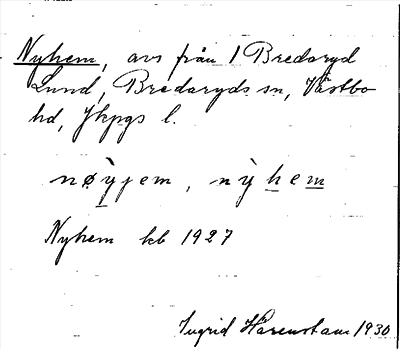 Nyhem, avs från 1 Bredaryd
Lund, Bredaryds sn, Västbo
hd, Jkpgs l.
nøỳjem, nỳhem
Nyhem kb 1927
Ingrid Härenstam 1930